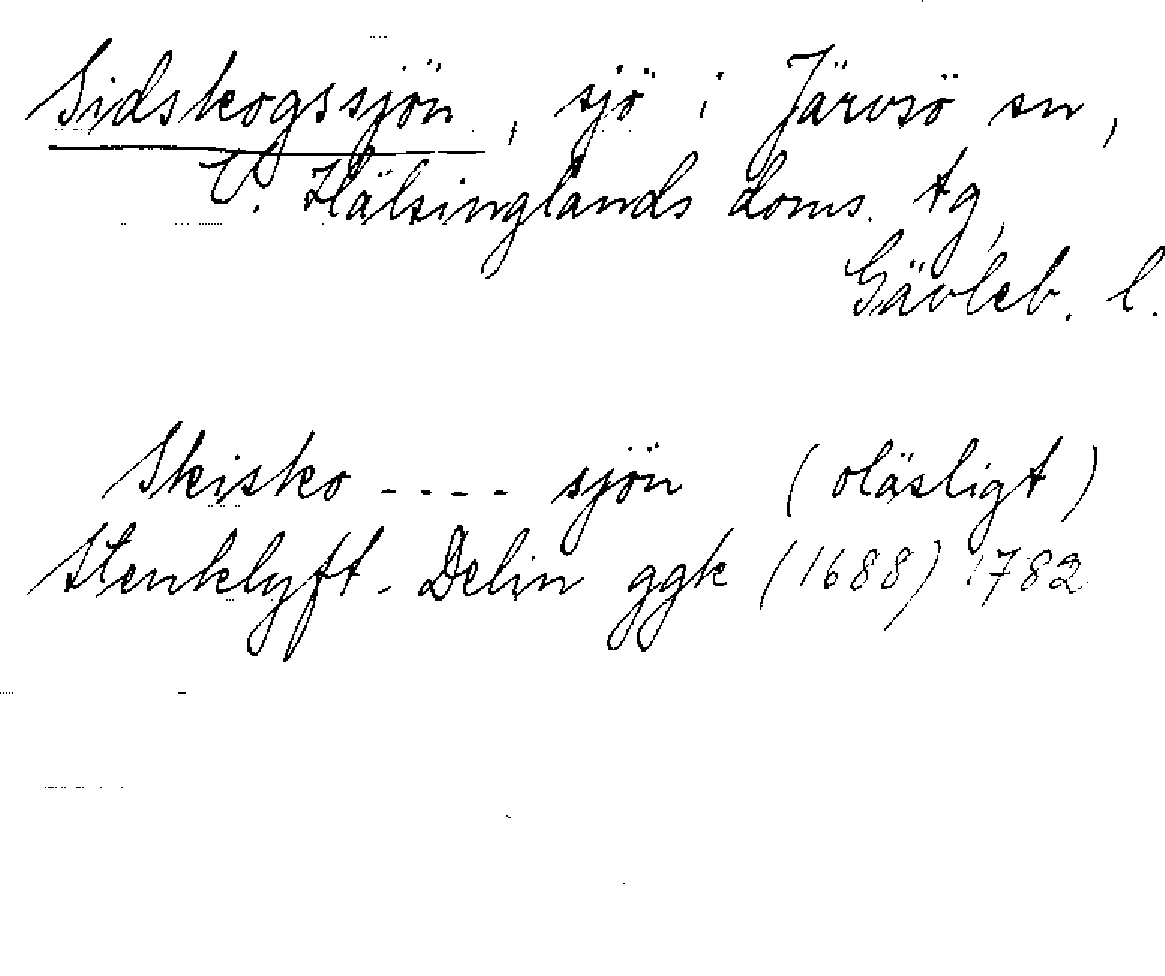 Sidskogssjön, sjö i Järvsö sn,
V. Hälsinglands doms. tg,
Gävleb. l.
Skisko---- sjön (oläsligt)
Stenklyft- Delin ggk (1688) 1782